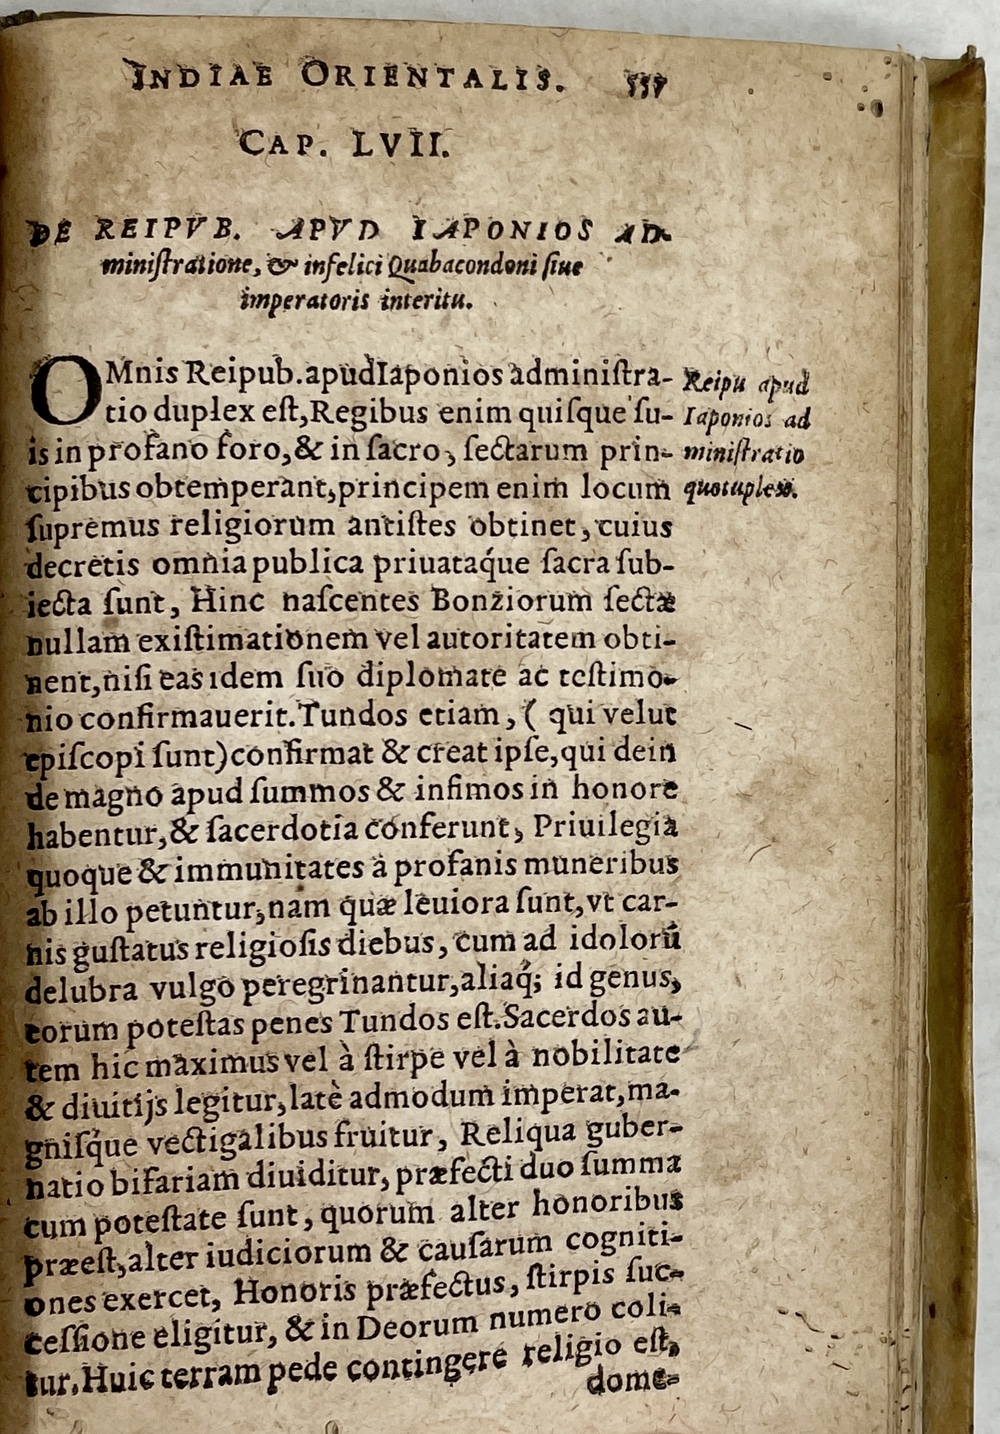 INDIAE ORIENTALIS. 557
CAP. LVII.
DE REIPVB. APVD IAPONIOS AD-
miniſtratione, & infelici Quabacondoni ſiue
imperatoris interitu.
OMnis Reipub.apud Iaponios adminiſtra-
tio duplex eſt, Regibus enim quiſque ſu-
is in profano foro, & in ſacro, ſectarum prin-
cipibus obtemperant, principem enim locum
ſupremus religiorum antiſtes obtinet, cuius
decretis omnia publica priuataq́ue ſacra ſub-
iecta ſunt, Hinc naſcentes Bonziorum ſectæ
nullam exiſtimationem vel autoritatem obti-
nent, niſi eas idem ſuo diplomate ac teſtimo-
nio confirmauerit. Tundos etiam, ( qui velut
epiſcopi ſunt) confirmat & creat ipſe, qui dein
de magno apud ſummos & infimos in honore
habentur, & ſacerdotia conferunt, Priuilegia
quoque & immunitates à profanis muneribus
ab illo petuntur, nam quæ leuiora ſunt, vt car-
nis guſtatus religioſis diebus, cum ad idolorū
delubra vulgo peregrinantur, aliaq́; id genus,
eorum poteſtas penes Tundos eſt. Sacerdos au-
tem hic maximus vel à ſtirpe vel à nobilitate
& diuitijs legitur, latè admodum imperat, ma-
gniſq́ue vectigalibus fruitur, Reliqua guber-
natio bifariam diuiditur, præfecti duo ſumma
cum poteſtate ſunt, quorum alter honoribus
præeſt, alter iudiciorum & cauſarum cogniti-
ones exercet, Honoris præfectus, ſtirpis ſuc-
ceſſione eligitur, & in Deorum numero coli-
tur. Huic terram pede contingere religio eſt,
dome-
Reipu apud
Iaponios ad
miniſtratio
quotuplex.